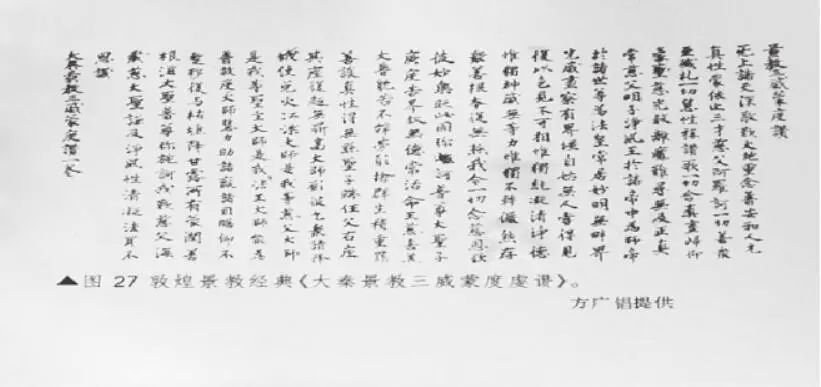 景教三威蒙度讚
无上諸天深敬歎大地重念普安和人元
真性蒙依止三才慈父阿羅訶一切善眾
至誠礼一切慧性稱讚歌一切含真盡歸仰
蒙聖慈光救離魔難尋無及正真
常慈父明子淨風王於諸帝中為師帝
於諸世尊為法皇常居妙明無畔界
光威盡察有界疆自始無人嘗得見
復以色見不可相惟獨絕凝清淨德
惟獨神威無等力惟獨不轉儼然存
眾善根本復無極我今一切念慈恩歎
彼妙樂照此國彌施訶普尊大聖子
廣度苦界救無億常活命王慈喜羔
大普耽苦不辭勞願捨群生積重罪
善護真性得無繇聖子端任父右座
其座復超無鼎高大師願彼乞眾請降
栰使免火江漂大師是我等慈父大師
是我等聖主大師是我法王大師能為
普救度大師慧力助諸羸諸目瞻仰不
蹔移復与枯燋降甘露所有蒙潤善
根滋大聖普尊彌施訶我歎慈父海
藏慈大聖謙及淨風性清凝法耳不
思議
大秦景教三威蒙度讚一卷
▲图 27 敦煌景教经典《大秦景教三威蒙度虔谱》。
方广锠提供